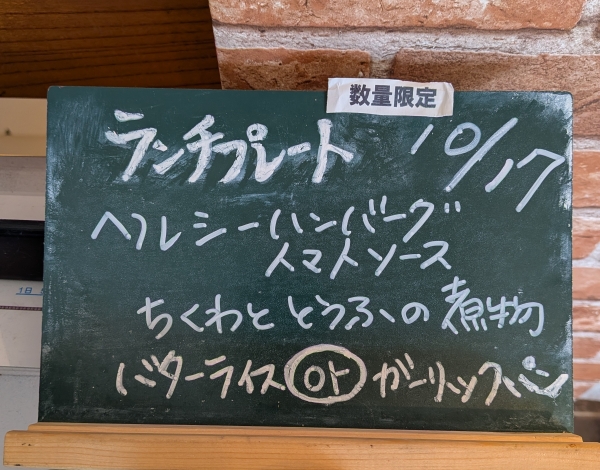 数量限定
ランチプレート 10/17
ヘルシーハンバーグ
トマトソース
ちくわととうふの煮物
バターライス or ガーリックパン
1日